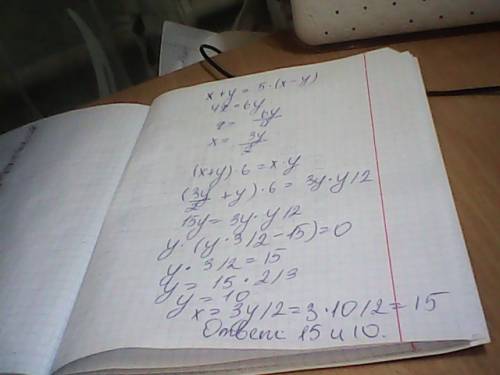 x+y = 5·(x-y)
4x = 6y
x = 6y/4
x = 3y/2
(x+y)·6 = x·y
(3y/2 + y)·6 = 3y·y/2
15y = 3y·y/2
y·(y·3/2-15)=0
y·3/2 = 15
y = 15·2/3
y = 10
x = 3y/2 = 3·10/2 = 15
Ответ: 15 и 10.